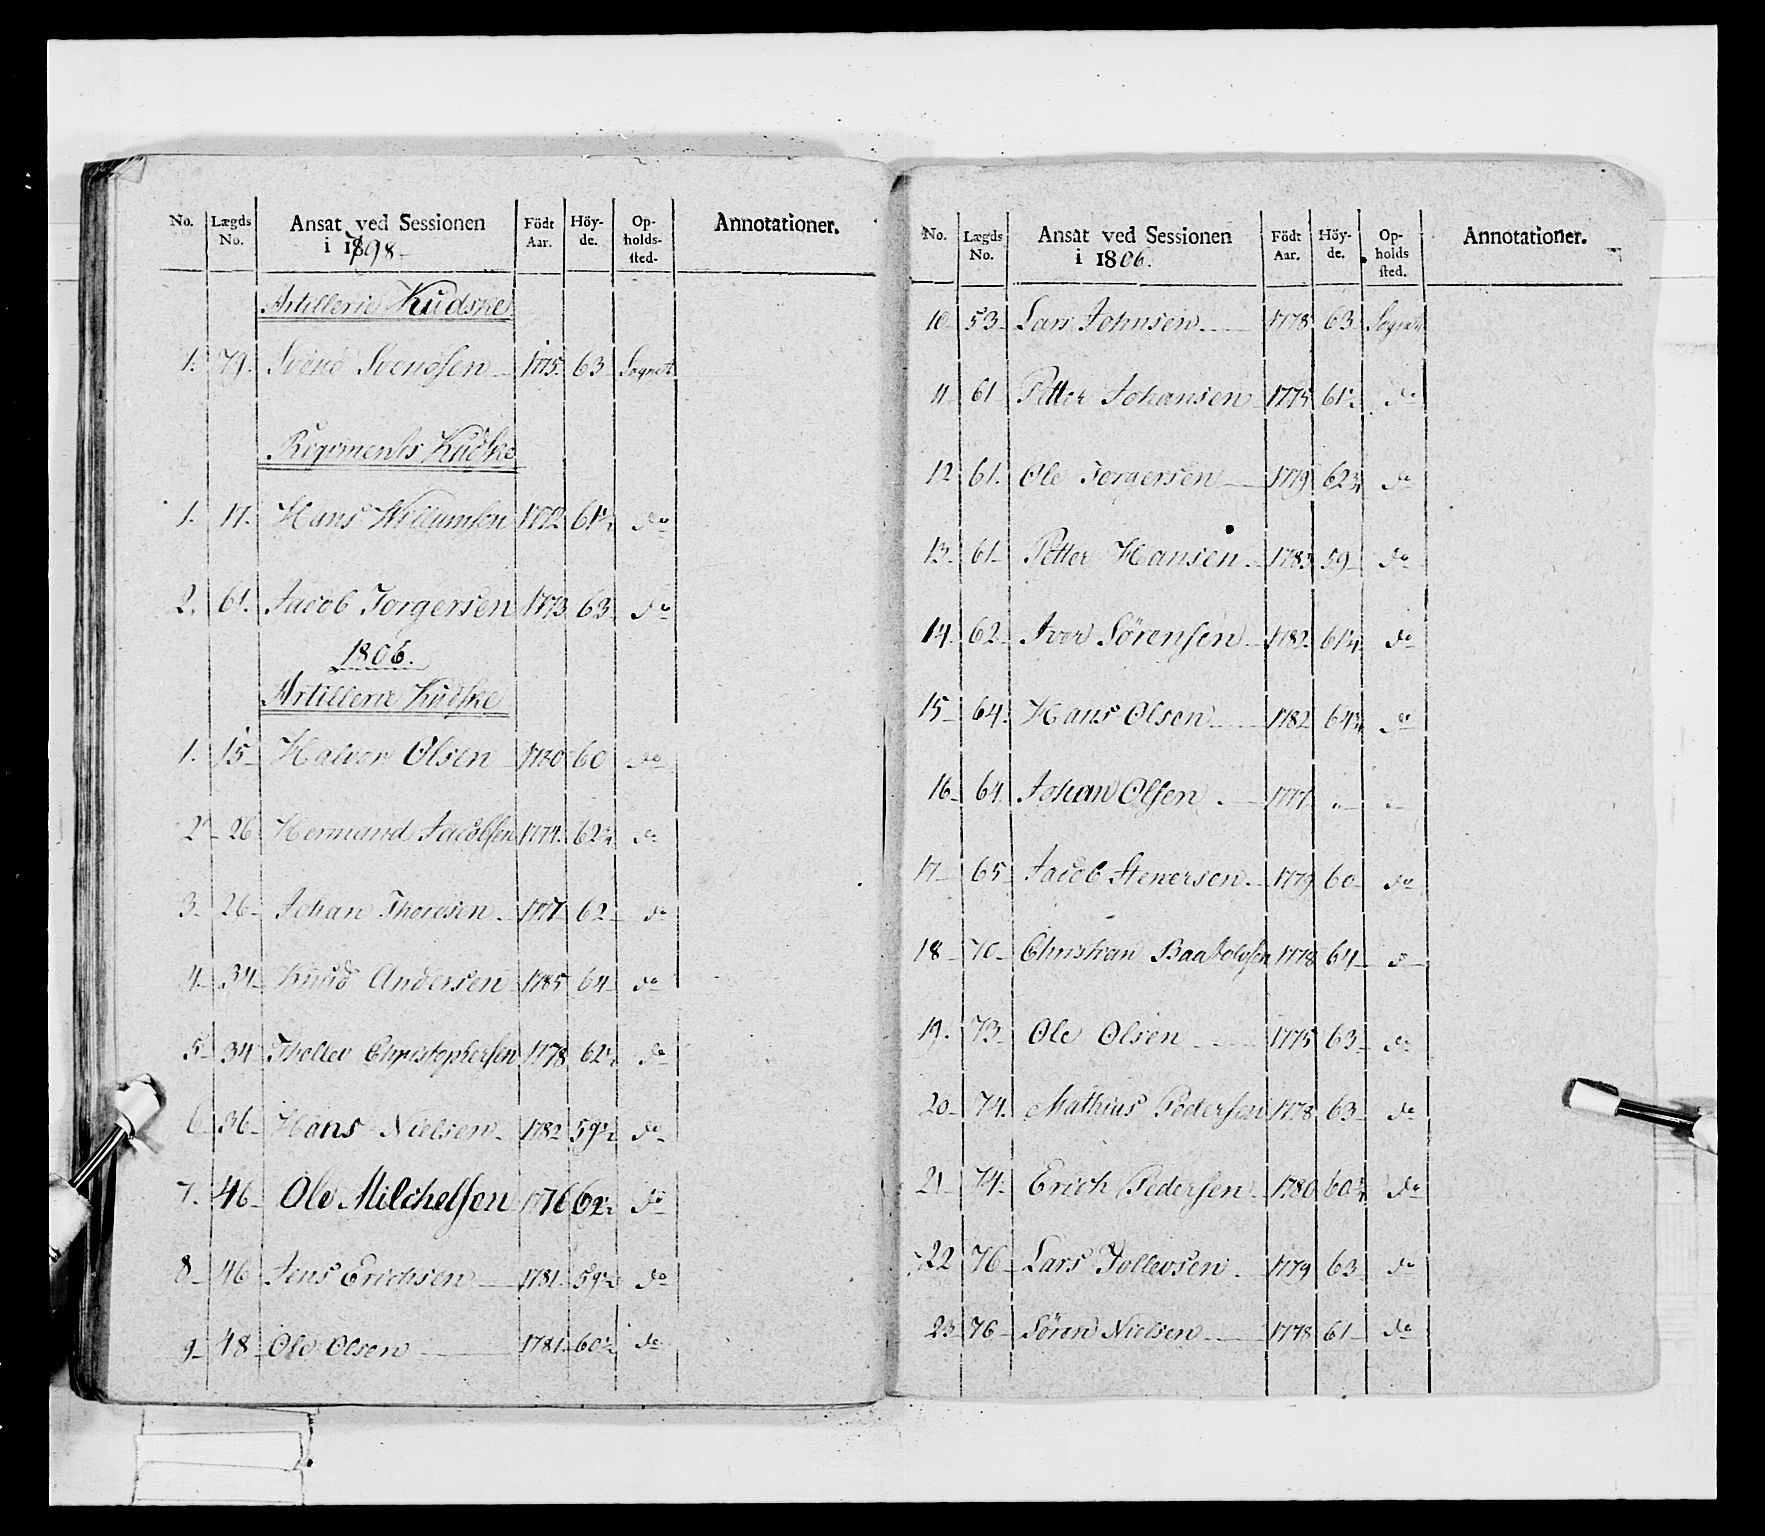 No. Lægds No. Ansat ved Sessionen i 1798 Födt Aar. Höy-de. Op-holds-sted. Annotationer.
Artillerie Kudske
1. 79. Svend Svendsen 1775. 63 Sognet
Regiments Kudske
1. 17. Hans Willumsen 1772 61½ do
2. 61. Jacob Jorgersen 1773 63 do
1806.
Artillerie Kudske
1. 15 Halvor Olsen 1780 60 do
2 26 Hermand Jacobsen 1774. 62¼ do
3 26 Johan Thoresen 1777 62 do
4 34 Knud Andersen 1785 64 do
5 34 Thollev Christophersen 1778 62½ do
6 36 Hans Nielsen 1782 59½ do
7. 46 Ole Milchelsen 1776 62½ do
8 46 Jens Erichsen 1781. 59½ do
9 48 Ole Olsen 1781. 60½ do
No. Lægds No. Ansat ved Sessionen i 1806. Födt Aar. Höy-de. Op-holds sted. Annotationer.
10 53 Lars Johnsen 1778 63 Sognet
11 61 Petter Johansen 1775 61½ do
12 61. Ole Jorgersen 1779 62¾ do
13 61 Petter Hansen 1783 59 do
14. 62 Iver Sörensen 1782. 61¼ do
15 64. Hans Olsen 1782 64¾ do
16 64 Johan Olsen 1777 " "
17 65 Jacob Stenersen 1779 60 do
18 70 Christian Baa 1778 64 do
19. 73 Ole Olsen 1775 63 do
20 74. Mathias Pedersen 1778 63 do
21 74. Erich Pedersen 1780 60¾ do
22 76 Lars Tollevsen 1779 63 do
23 76 Sören Nielsen 1778 61 do